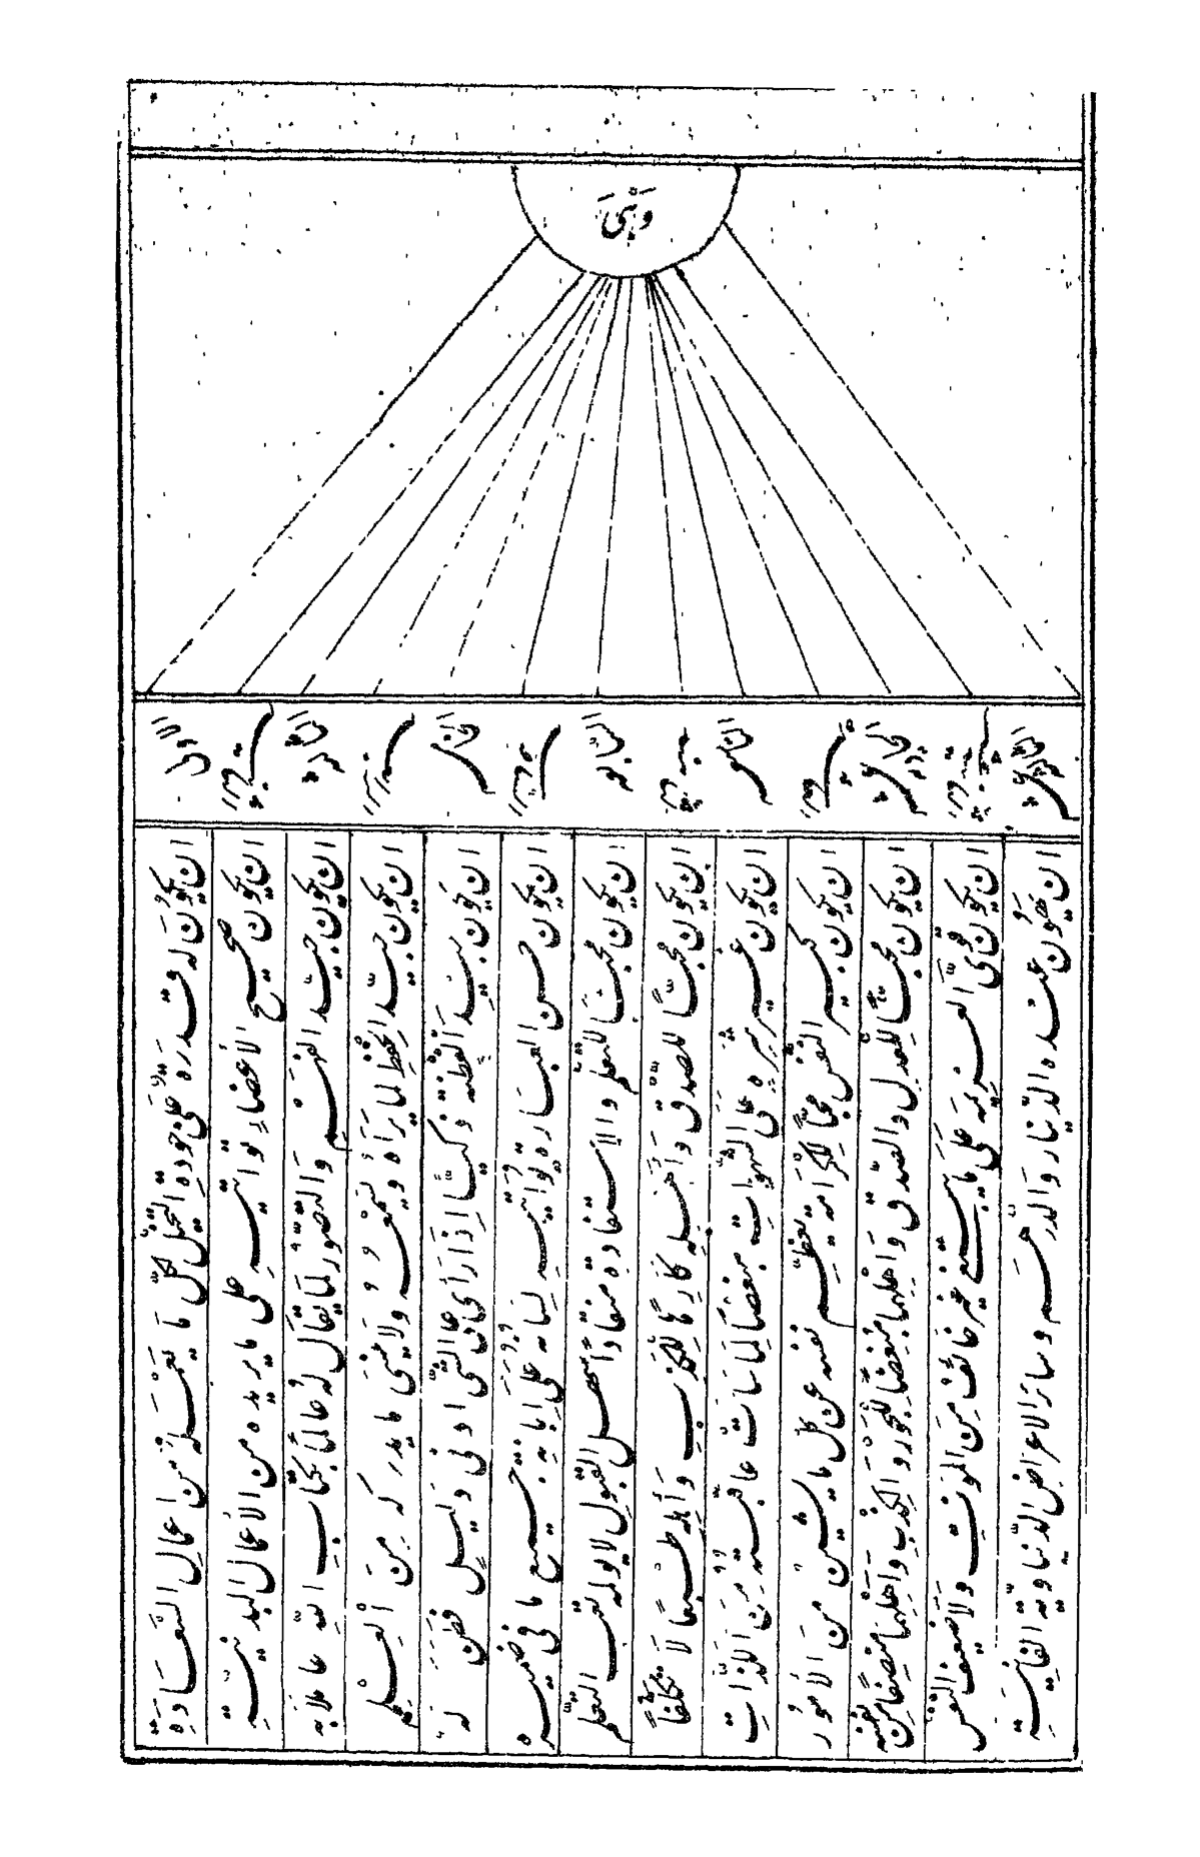 وَهْبيَ
الاولى
ان يكون له قدرة على جودة التخيل لكل ما يعمله من اعمال السعادة
الثانية
ان يكون صحيح الاعضاء تواتيه على ما يريده من الاعمال البدنية
الثالثة
ان يكون جيد الفهم والتصور لما يقال له عالماً بكتاب الله عاملا به
الرابعة
ان يكون جيد الحفظ لما يراه ويسمعه ولا ينسى ما يدركه من العلم
الخامسة
ان يكون جيد الفطنة ذكيّاً اذا رأى على الشئ ادنى دليل فطن له
السادسة
ان يكون حسن العبارة تواتيه لسانه على ابانة جميع ما في ضميره
السابعة
ان يكون محبّاً للتعلم والاستفادة منقاداً سهل القبول لا يولمه تعب التعلم
الثامنة
ان يكون محبّاً للصدق واهله كارهاً للكذب واهله طبعاً لا تكلفاً
التاسعة
ان يكون غير شره على الشهوات مبغضاً لما سائت عاقبته من اللذات
العاشرة
ان يكون كبير النفس محبّاً للكرامة تعظم نفسه عن كل ما يشين من الامور
الحادية عشرة
ان يكون محبّاً للعدل والصدق واهلهما مبغضاً للجور والكذب واهلهما منصفاً من نفسه
الثانية عشرة
ان يكون قوى العزيمة على ما ينبغي غير خائف من الموت ولا ضعيف النفس
الثالثة عشرة
ان يهون عنده الدينار والدرهم وسائر الاعراض الدنياوية الفانية